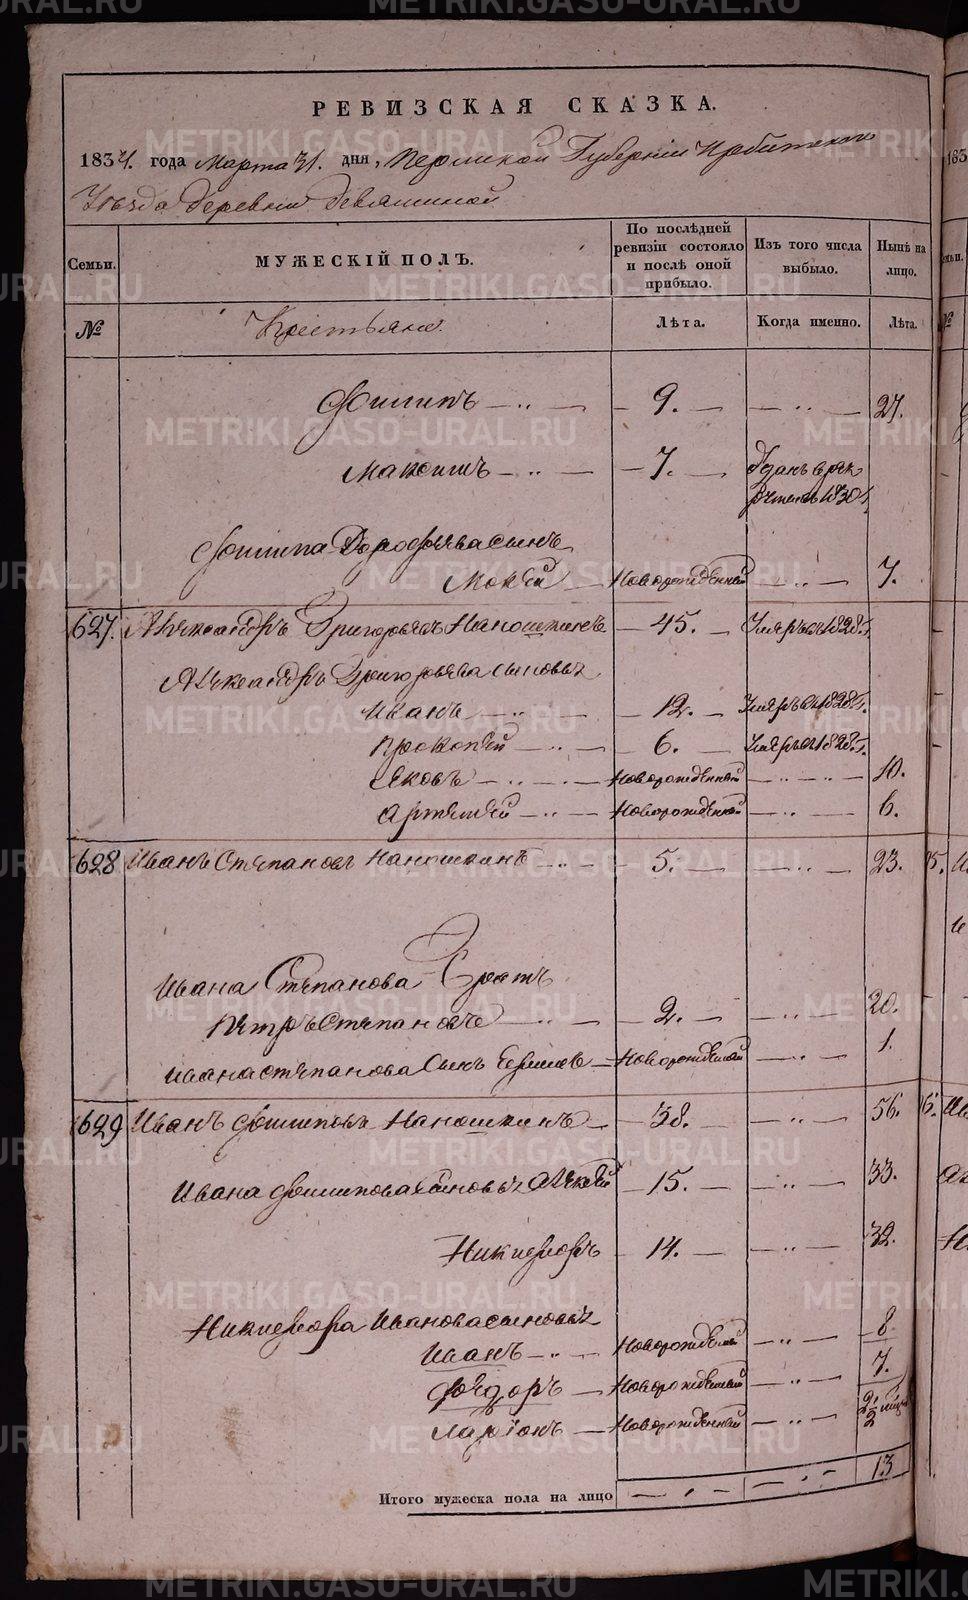 РЕВИЗСКАЯ СКАЗКА.
1834. года Марта 31. дня, Пермской Губернии Ирбитского
Уезда деревни Девяшиной
Семьи. МУЖЕСКІЙ ПОЛЪ. По послѣдней ревизіи состояло и послѣ оной прибыло. Изъ того числа выбыло. Нынѣ на лицо.
№ Крестьяне Лѣта. Когда именно. Лѣта.
Филипъ — 9. — 27.
Максимъ — 7. — Отданъ в рек
руты 1830 г.
Филипа Дорофеева сынъ
Мокей — Новорожденный — 7.
627. Александръ Григорьевъ Наношкинъ — 45. — Умеръ въ 1828 г.
Александра Григорьева сыновья
Иванъ — 12. — Умеръ въ 1828 г.
Прокопей — 6. — Умеръ въ 1828 г.
Яковъ — Новорожденный — 10.
Артемей — Новорожденной — 6.
628 Иванъ Степановъ Наношкинъ — 5. — 23.
Ивана Степанова братъ
Петръ Степановъ — 2. — 20.
Ивана Степанова сынъ Ермолъ — Новорожденной — 1.
629 Иванъ Филиповъ Наношкинъ — 38. — 56.
Ивана Филипова сыновья Алексей — 15. — 33.
Никифоръ — 14. — 32.
Никифора Иванова сыновья
Иванъ — Новорожденный — 8
Федоръ — Новорожденный — 7.
Ларионъ — Новорожденный —
Итого мужеска пола на лицо — 13